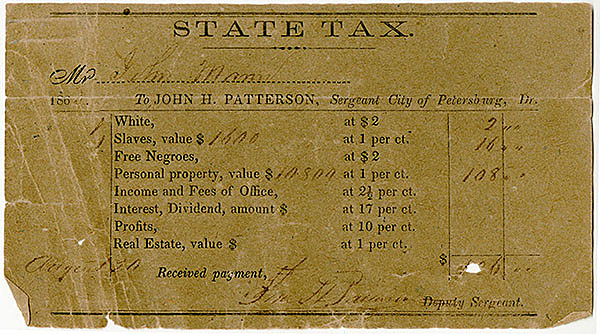 STATE TAX.
Mr John Mann
186 To JOHN H. PATTERSON, Sergeant City of Petersburg, Dr.
1 White, at $ 2 2 "
1 Slaves, value $ 1600 at 1 per ct. 16 "
Free Negroes, at $ 2
Personal property, value $ 10800 at 1 per ct. 108 "
Income and Fees of Office, at 2½ per ct.
Interest, Dividend, amount $ at 17 per ct.
Profits, at 10 per ct.
Real Estate, value $ at 1 per ct.
$ 126
Received payment,
Deputy Sergeant.